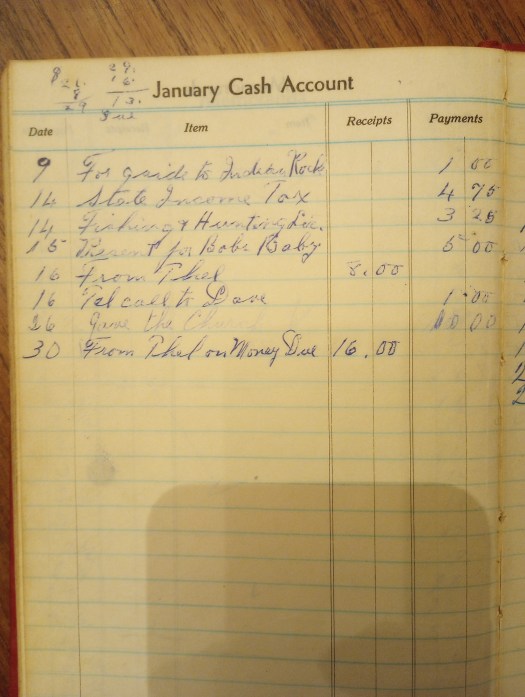 January Cash Account
Date Item Receipts Payments
9 For guide to Indian Rock 1 00
14 State Income Tax 4 75
14 Fishing & Hunting Lic. 3 25
15 Present for Bobs Baby 5 00
16 From Thel 8.00
16 Tel call to Dave 1 00
26 Gave the Church 10 00
30 From Thel on Money Due 16.00